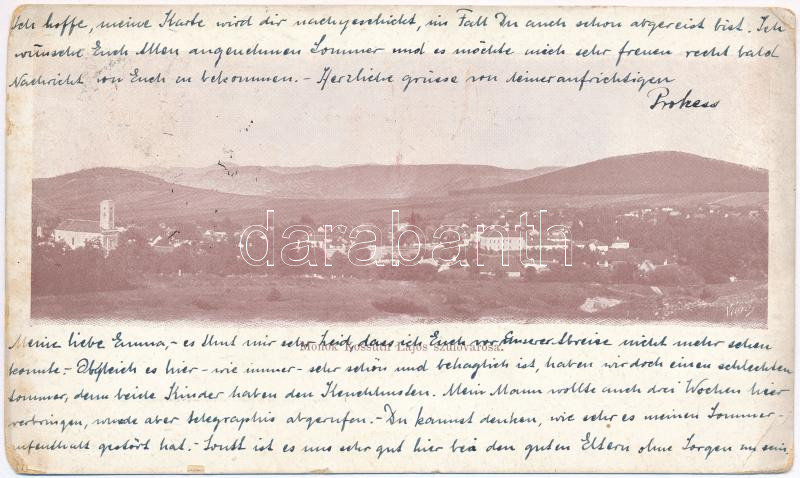 Ich hoffe, meine Karte wird dir nachgeschickt, im Fall Du auch schon abgereist bist. Ich
wünsche Euch Allen angenehmen Sommer und es möchte mich sehr freuen recht bald
Nachricht von Euch zu bekommen. – Herzliche grüsse von deiner aufrichtigen
darabanth
Meine liebe Emma, – es thut mir sehr leid dass ich Euch vor unserer Abreise nicht mehr sehen
Monok Kossuth Lajos szülővárosa.
konnte. – Obgleich es hier – wie immer – sehr schön und behaglich ist, haben wir doch einen schlechten
Sommer, denn beide Kinder haben den Keuchhusten. Mein Mann wollte auch drei Wochen hier
verbringen, wurde aber telegraphis abgerufen. – Du kannst denken, wie sehr es meinen Sommer-
aufenthalt gestört hat. – Sonst ist es uns sehr gut hier bei den guten Eltern ohne Sorgen zu sein,